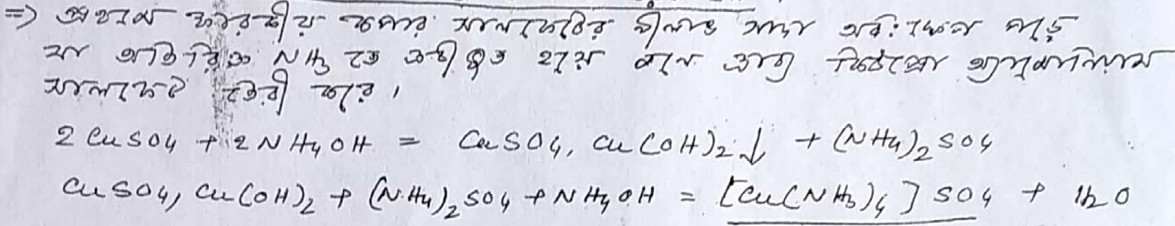 => প্রথমে ক্ষারকীয় কপার সালফেটের নীলাভ সাদা অধঃক্ষেপ পড়ে
যা অতিরিক্ত NH3 তে দ্রবীভূত হয়ে বলে অ্যামোনিয়াম
সালফেট তৈরী করে।
2 CuSO4 + 2 NH4OH = CuSO4, Cu(OH)2↓ + (NH4)2SO4
CuSO4, Cu(OH)2 + (NH4)2SO4 + NH4OH = [Cu(NH3)4]SO4 + H2O